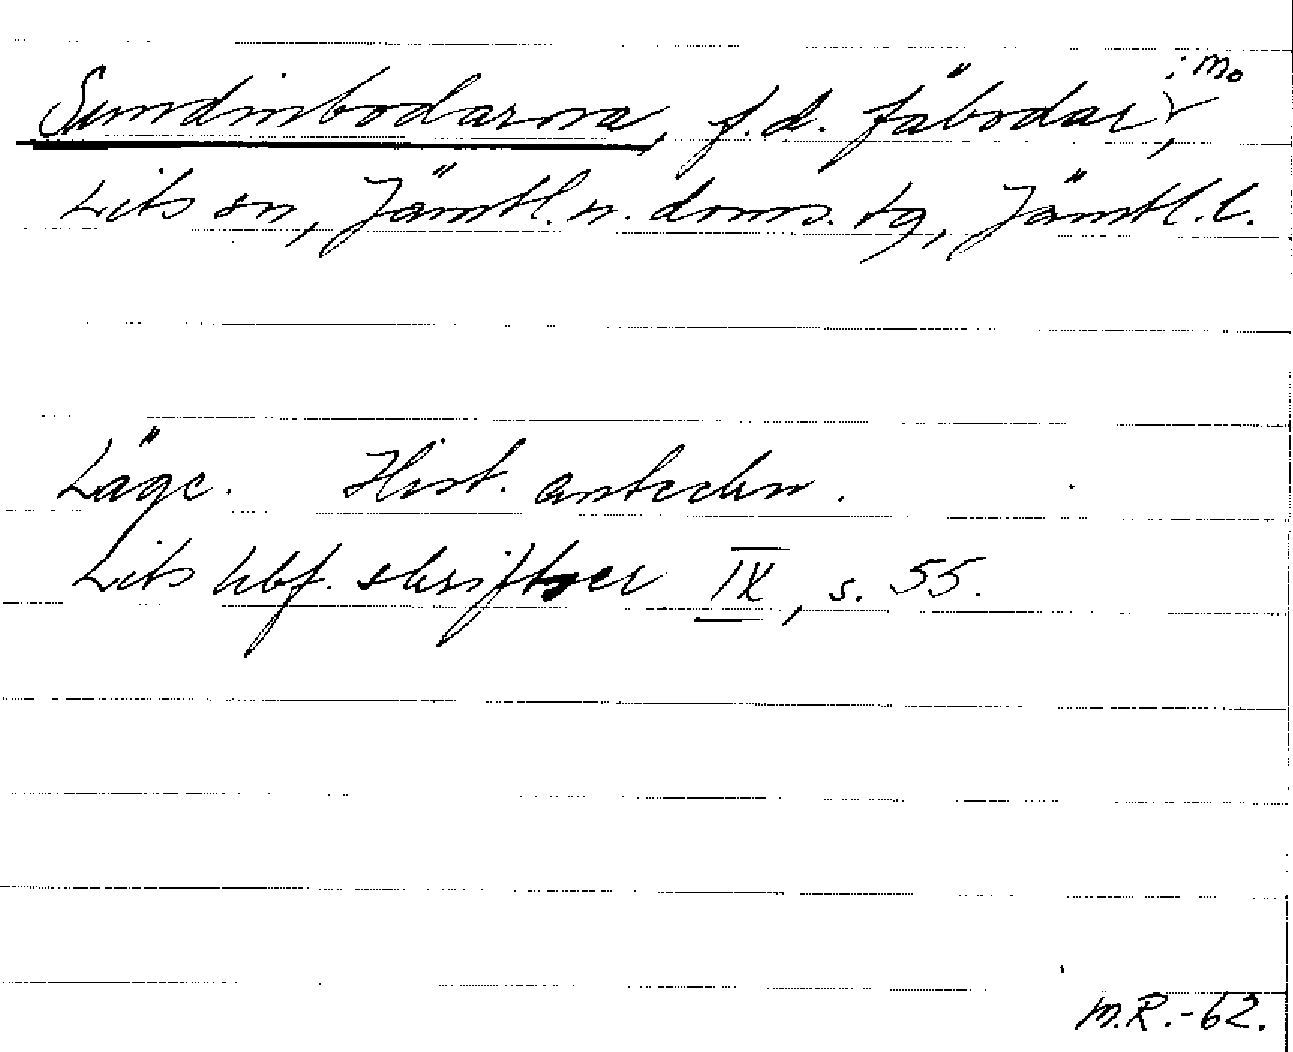 Sundinbodarna, f.d. fäbodar i Mo,
Lits sn, Jämtl. n. doms. tg, Jämtl. l.
Läge. Hist. anteckn.
Lits hbf. skrifter IX, s. 55.
M.R.-62.